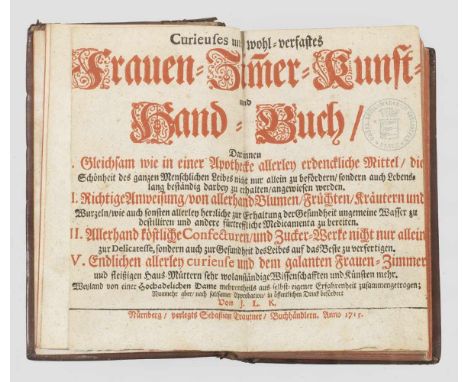 Curieuses und wohl-verfastes
Frauen-Zimer-Kunst-
und
Hand-Buch/
Darinnen
I. Gleichsam wie in einer Apothecke allerley erdenckliche Mittel/ die
Schönheit des ganzen Menschlichen Leibes nicht nur allein zu befördern/ sondern auch Lebens-
lang beständig darbey zu erhalten/angewiesen werden.
I. Richtige Anweisung/ von allerhand Blumen/ Früchten/ Kräutern und
Wurzeln/ wie auch sonsten allerley herrliche zur Erhaltung der Gesundheit ungemeine Wasser zu
destilliren und andere fürtreffliche Medicamenta zu bereiten.
II. Allerhand köstliche Confecturen/ und Zucker-Werke nicht nur allein
zur Delicatesse, sondern auch zur Gesundheit des Leibes auf das Beste zu verfertigen.
V. Endlichen allerley curieuse und dem galanten Frauen-Zimmer
und fleisigen Haus Müttern sehr wolanständige Wissenschafften und Künsten mehr.
Weyland von einer Hochadelichen Dame mehrentheils aus selbst-eigener Erfahrenheit zusammengetragen;
Nunmehr aber/ nach
zu öffentlichen Druck befördert
Von J. L. K.
Nürnberg/ verlegts Sebastian Trautner/ Buchhändlern. Anno 1715.